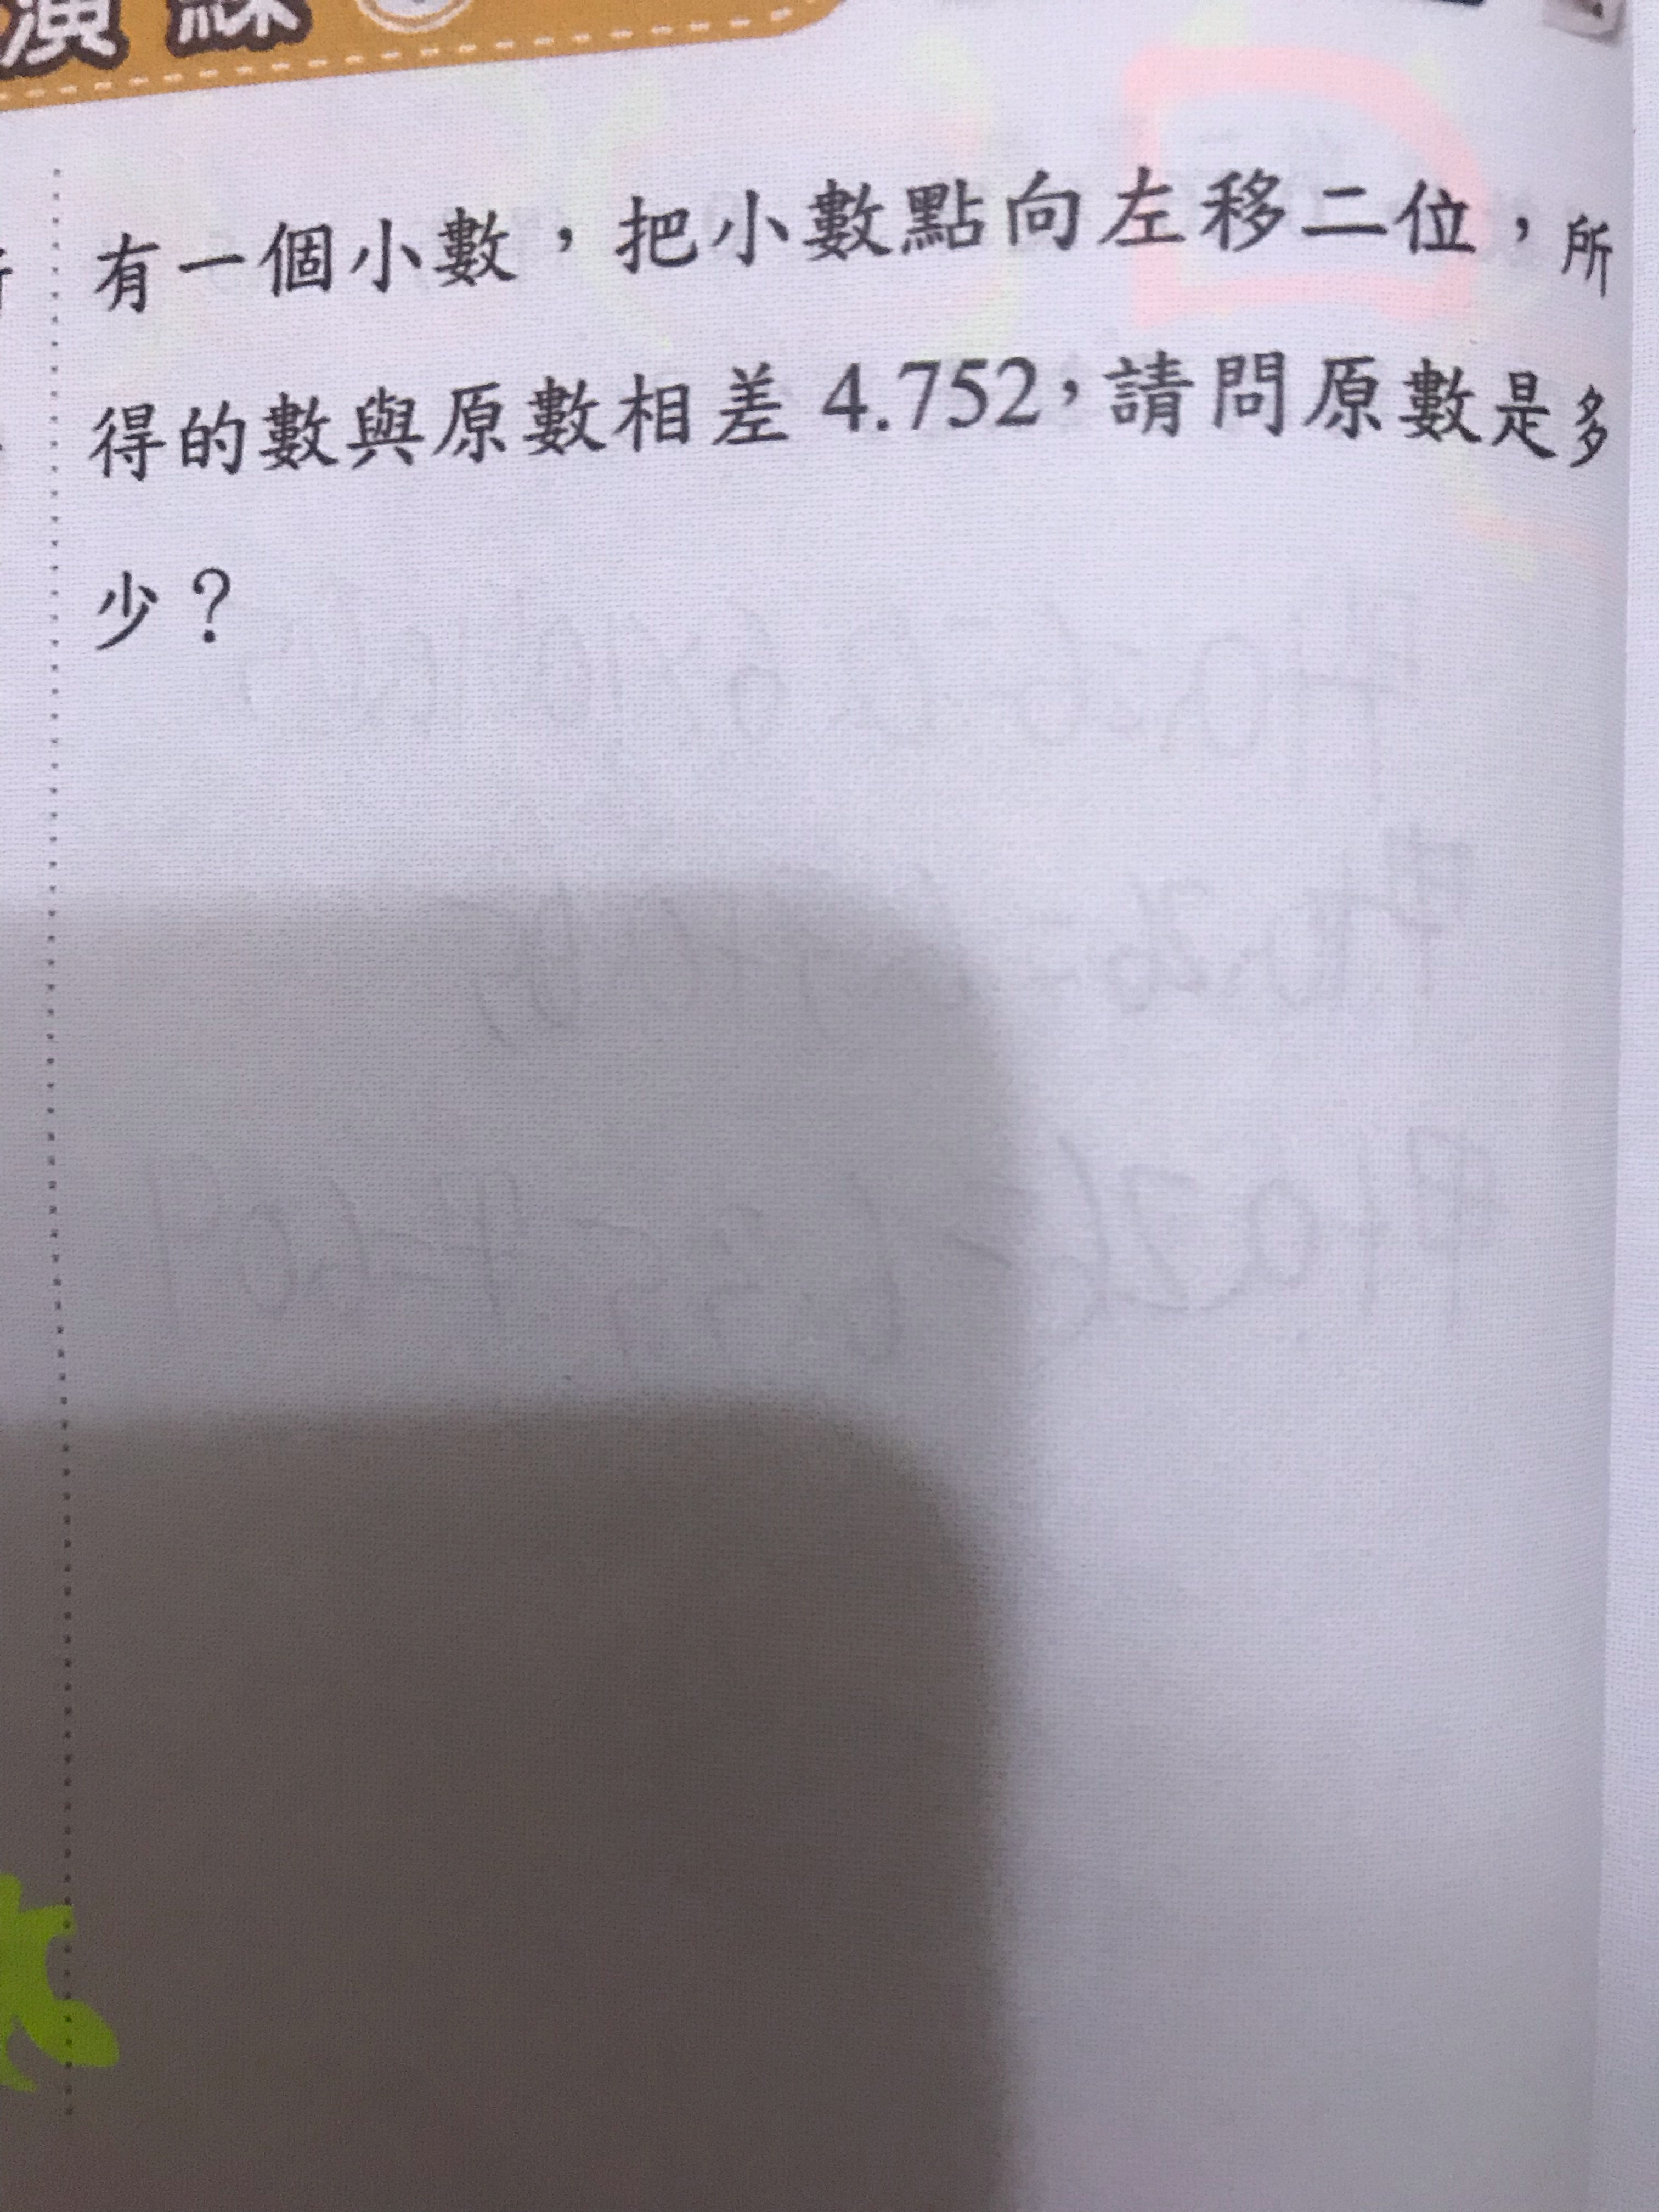 演練
有一個小數，把小數點向左移二位，所
得的數與原數相差 4.752，請問原數是多
少？